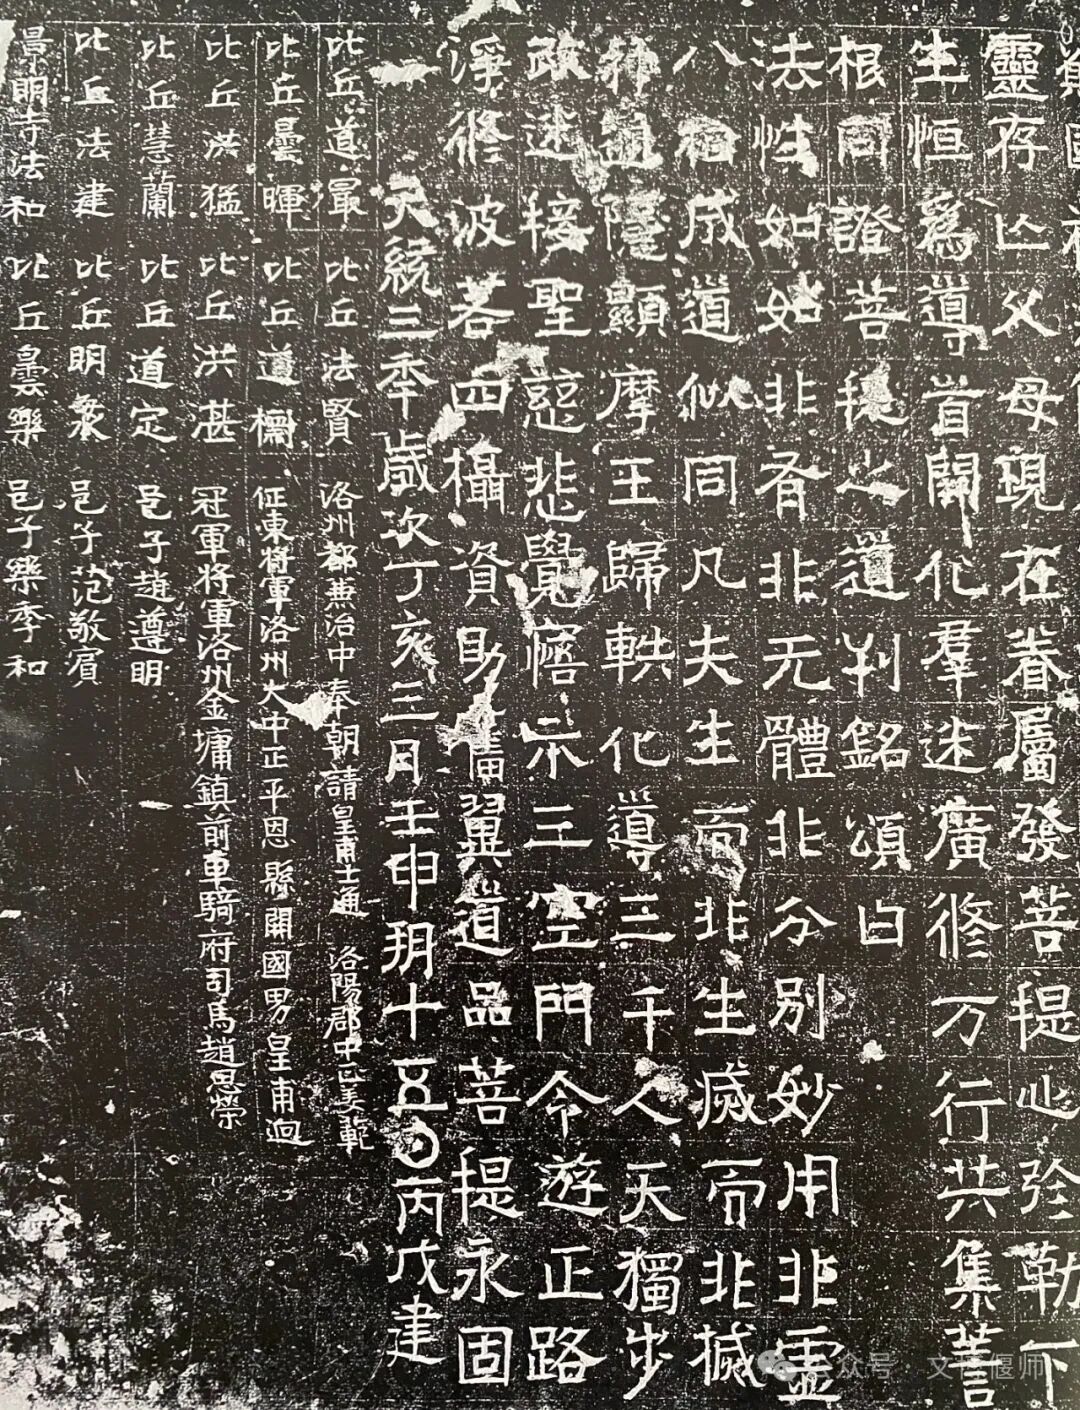 資國祚
靈存亡父母現在眷屬發菩提心弥勒下
生恒爲導首開化羣迷廣修万行共集菩
根同證菩提之道刊銘頌曰
法性如如非有非无體非分別妙用非靈
八相成道似同凡夫生而非生滅而非滅
神通隱顯摩王歸軼化導三千人天獨步
改迷接聖慈悲覺悟示三空門今遊正路
淨修波若四攝資助羽翼道品菩提永固
天統三年歲次丁亥三月壬申朔十五日丙戊建
比丘道最 比丘法賢 洛州都兼治中奉朝請皇甫士通 洛陽郡中正美範
比丘曇暉 比丘道 征東將軍洛州大中正平恩縣開國男皇甫迥
比丘洪猛 比丘洪甚 冠軍將軍洛州金墉鎮前車騎府司馬趙思榮
比丘慧蘭 比丘道定 邑子趙遵明
比丘法建 比丘明 邑子范敬賓
昌明寺法和 比丘曇樂 邑子樂季和
公众号 文 偃师